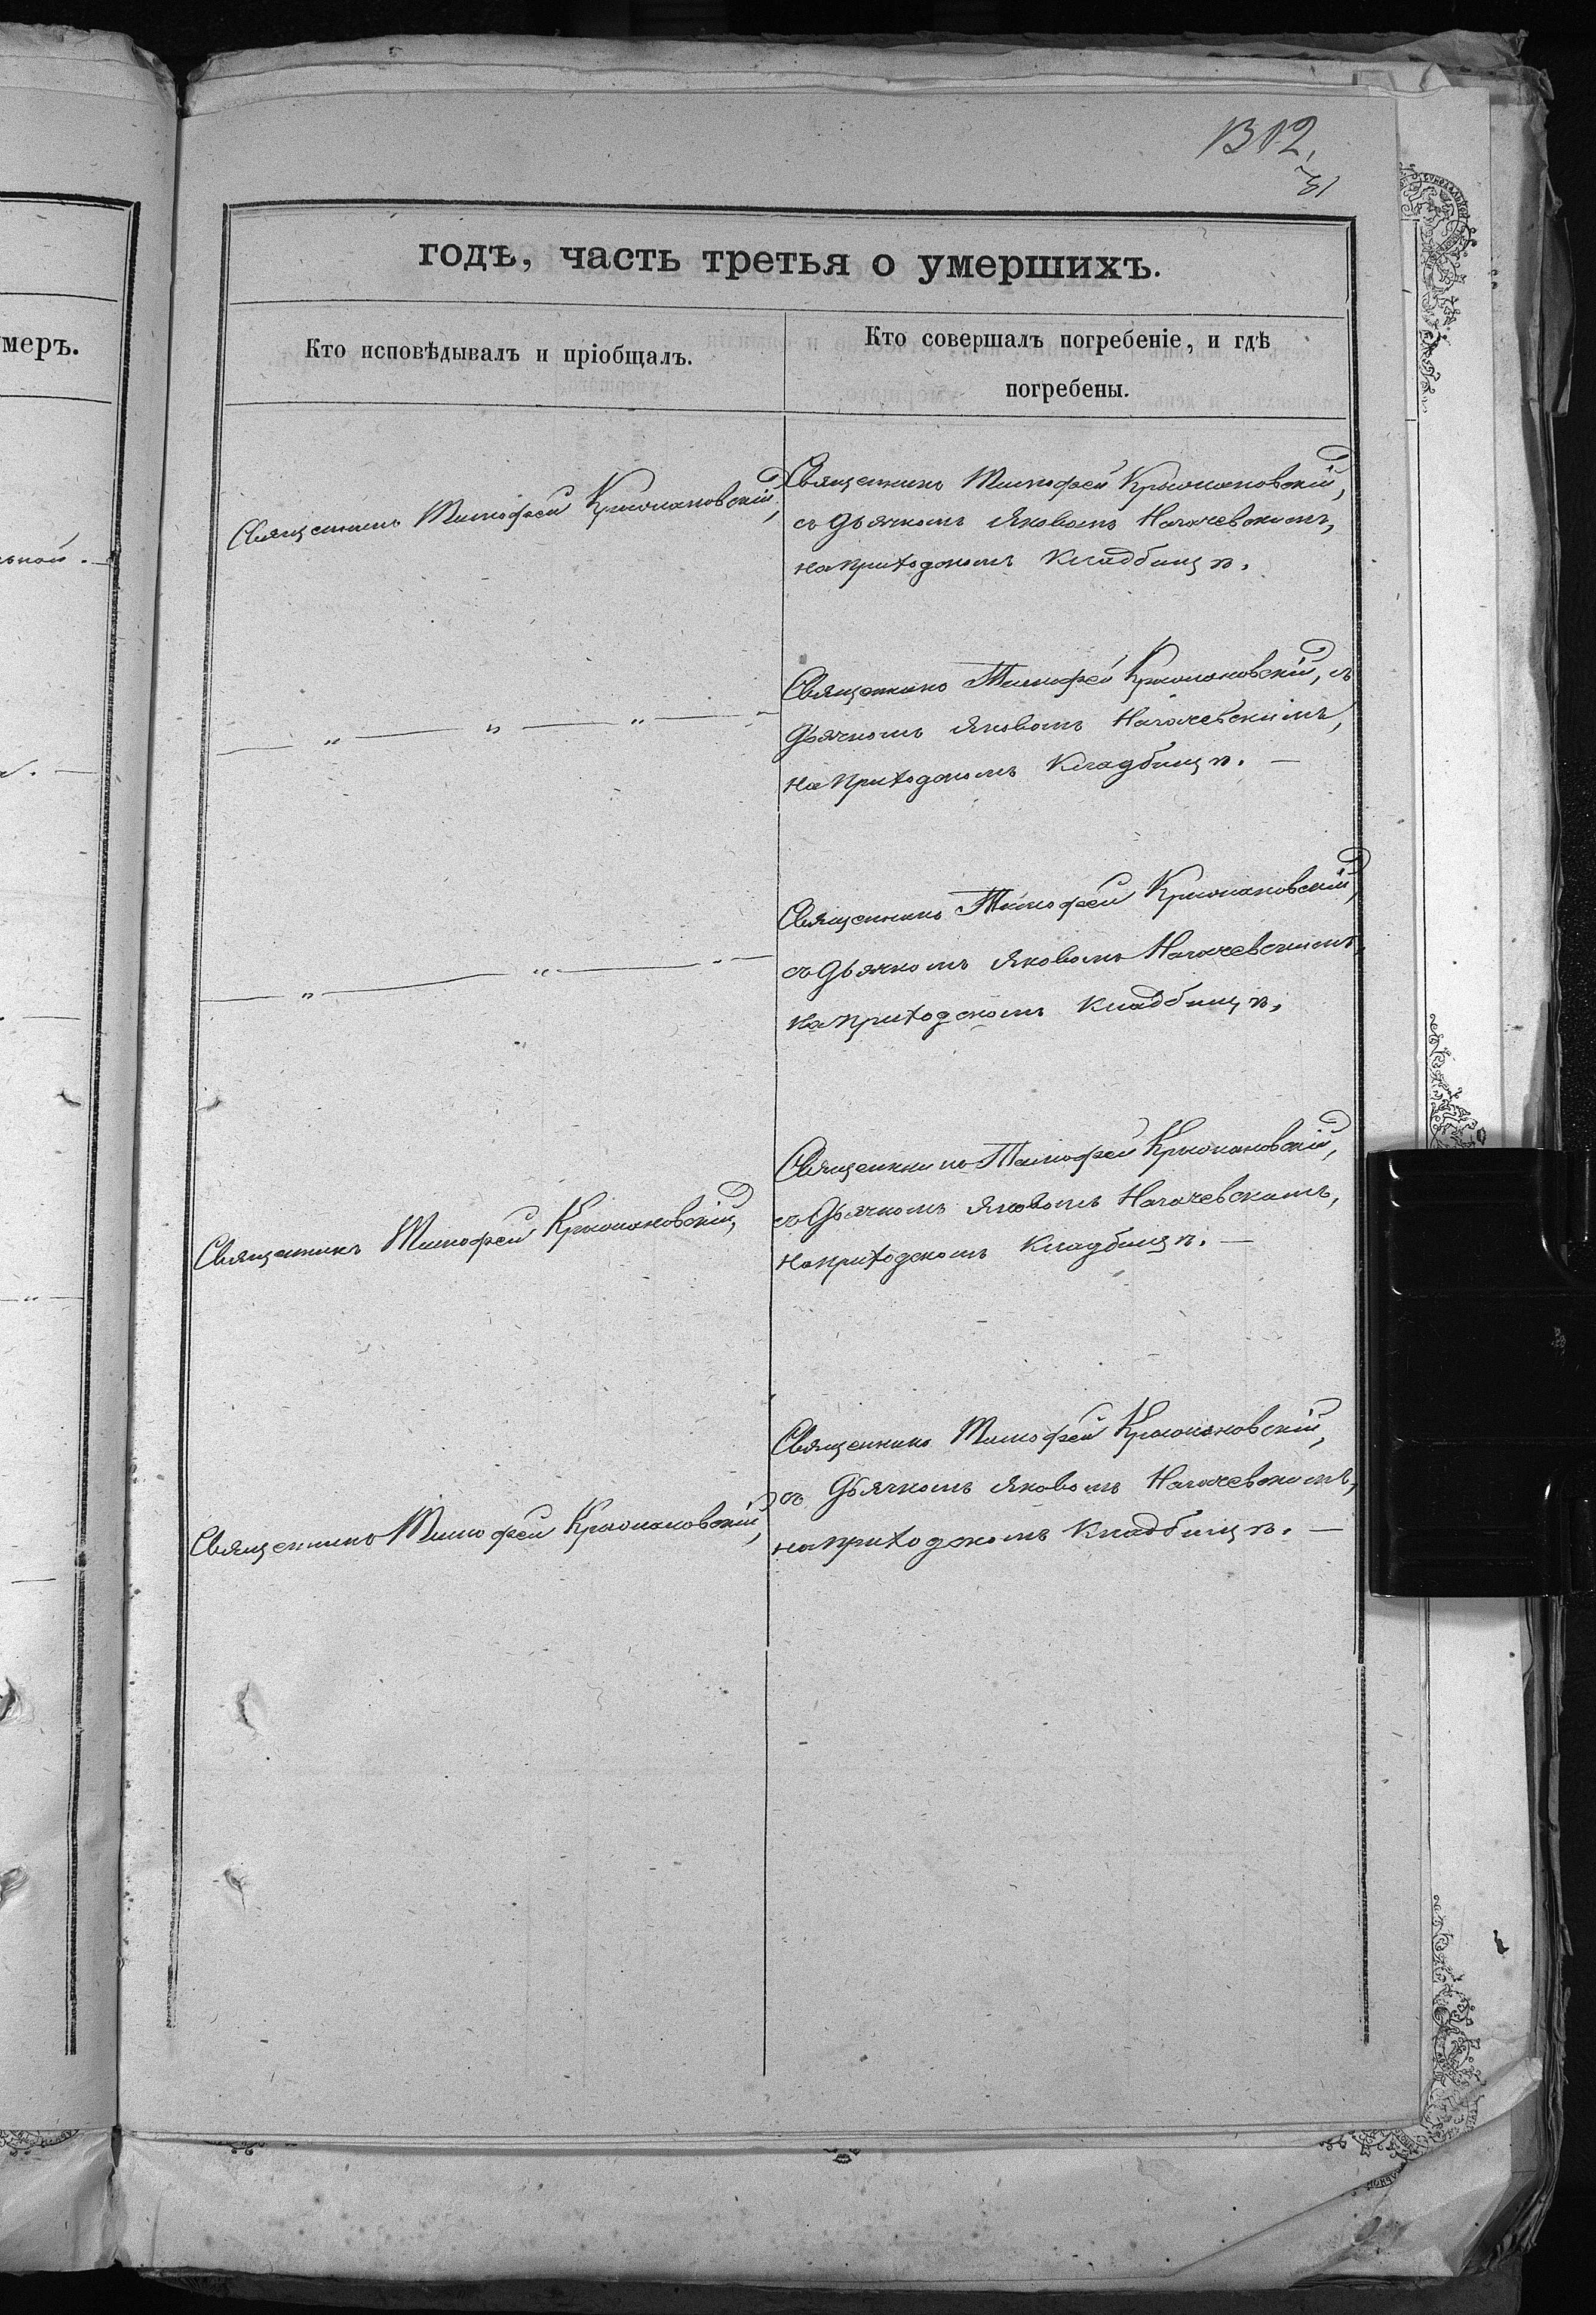 1312.
31
годъ, часть третья о умершихъ.
меръ.
Кто исповѣдывалъ и пріобщалъ.
Кто совершалъ погребеніе, и гдѣ
погребены.
Священникъ Тимофей Крыжановскій,
Священникъ Тимофей Крыжановскій,
съ Дьячкомъ ЯковомъНогачевскимъ,
на приходскомъ кладбищѣ.
— „ — „ — „ —
Священникъ Тимофей Крыжановскій, съ
Дьячкомъ Яковомъ Ногачевскимъ,
на приходскомъ кладбищѣ. —
— „ — „ — „ —
Священникъ Тимофей Крыжановскій,
съ Дьячкомъ Яковомъ Ногачевскимъ,
на приходскомъ кладбищѣ.
Священникъ Тимофей Крыжановскій,
Священникъ Тимофей Крыжановскій,
съ Дьячкомъ Яковомъ Ногачевскимъ,
на приходскомъ кладбищѣ. —
Священникъ Тимофей Крыжановскій,
Священникъ Тимофей Крыжановскій,
съ Дьячкомъ Яковомъ Ногачевскимъ,
на приходскомъ кладбищѣ. —